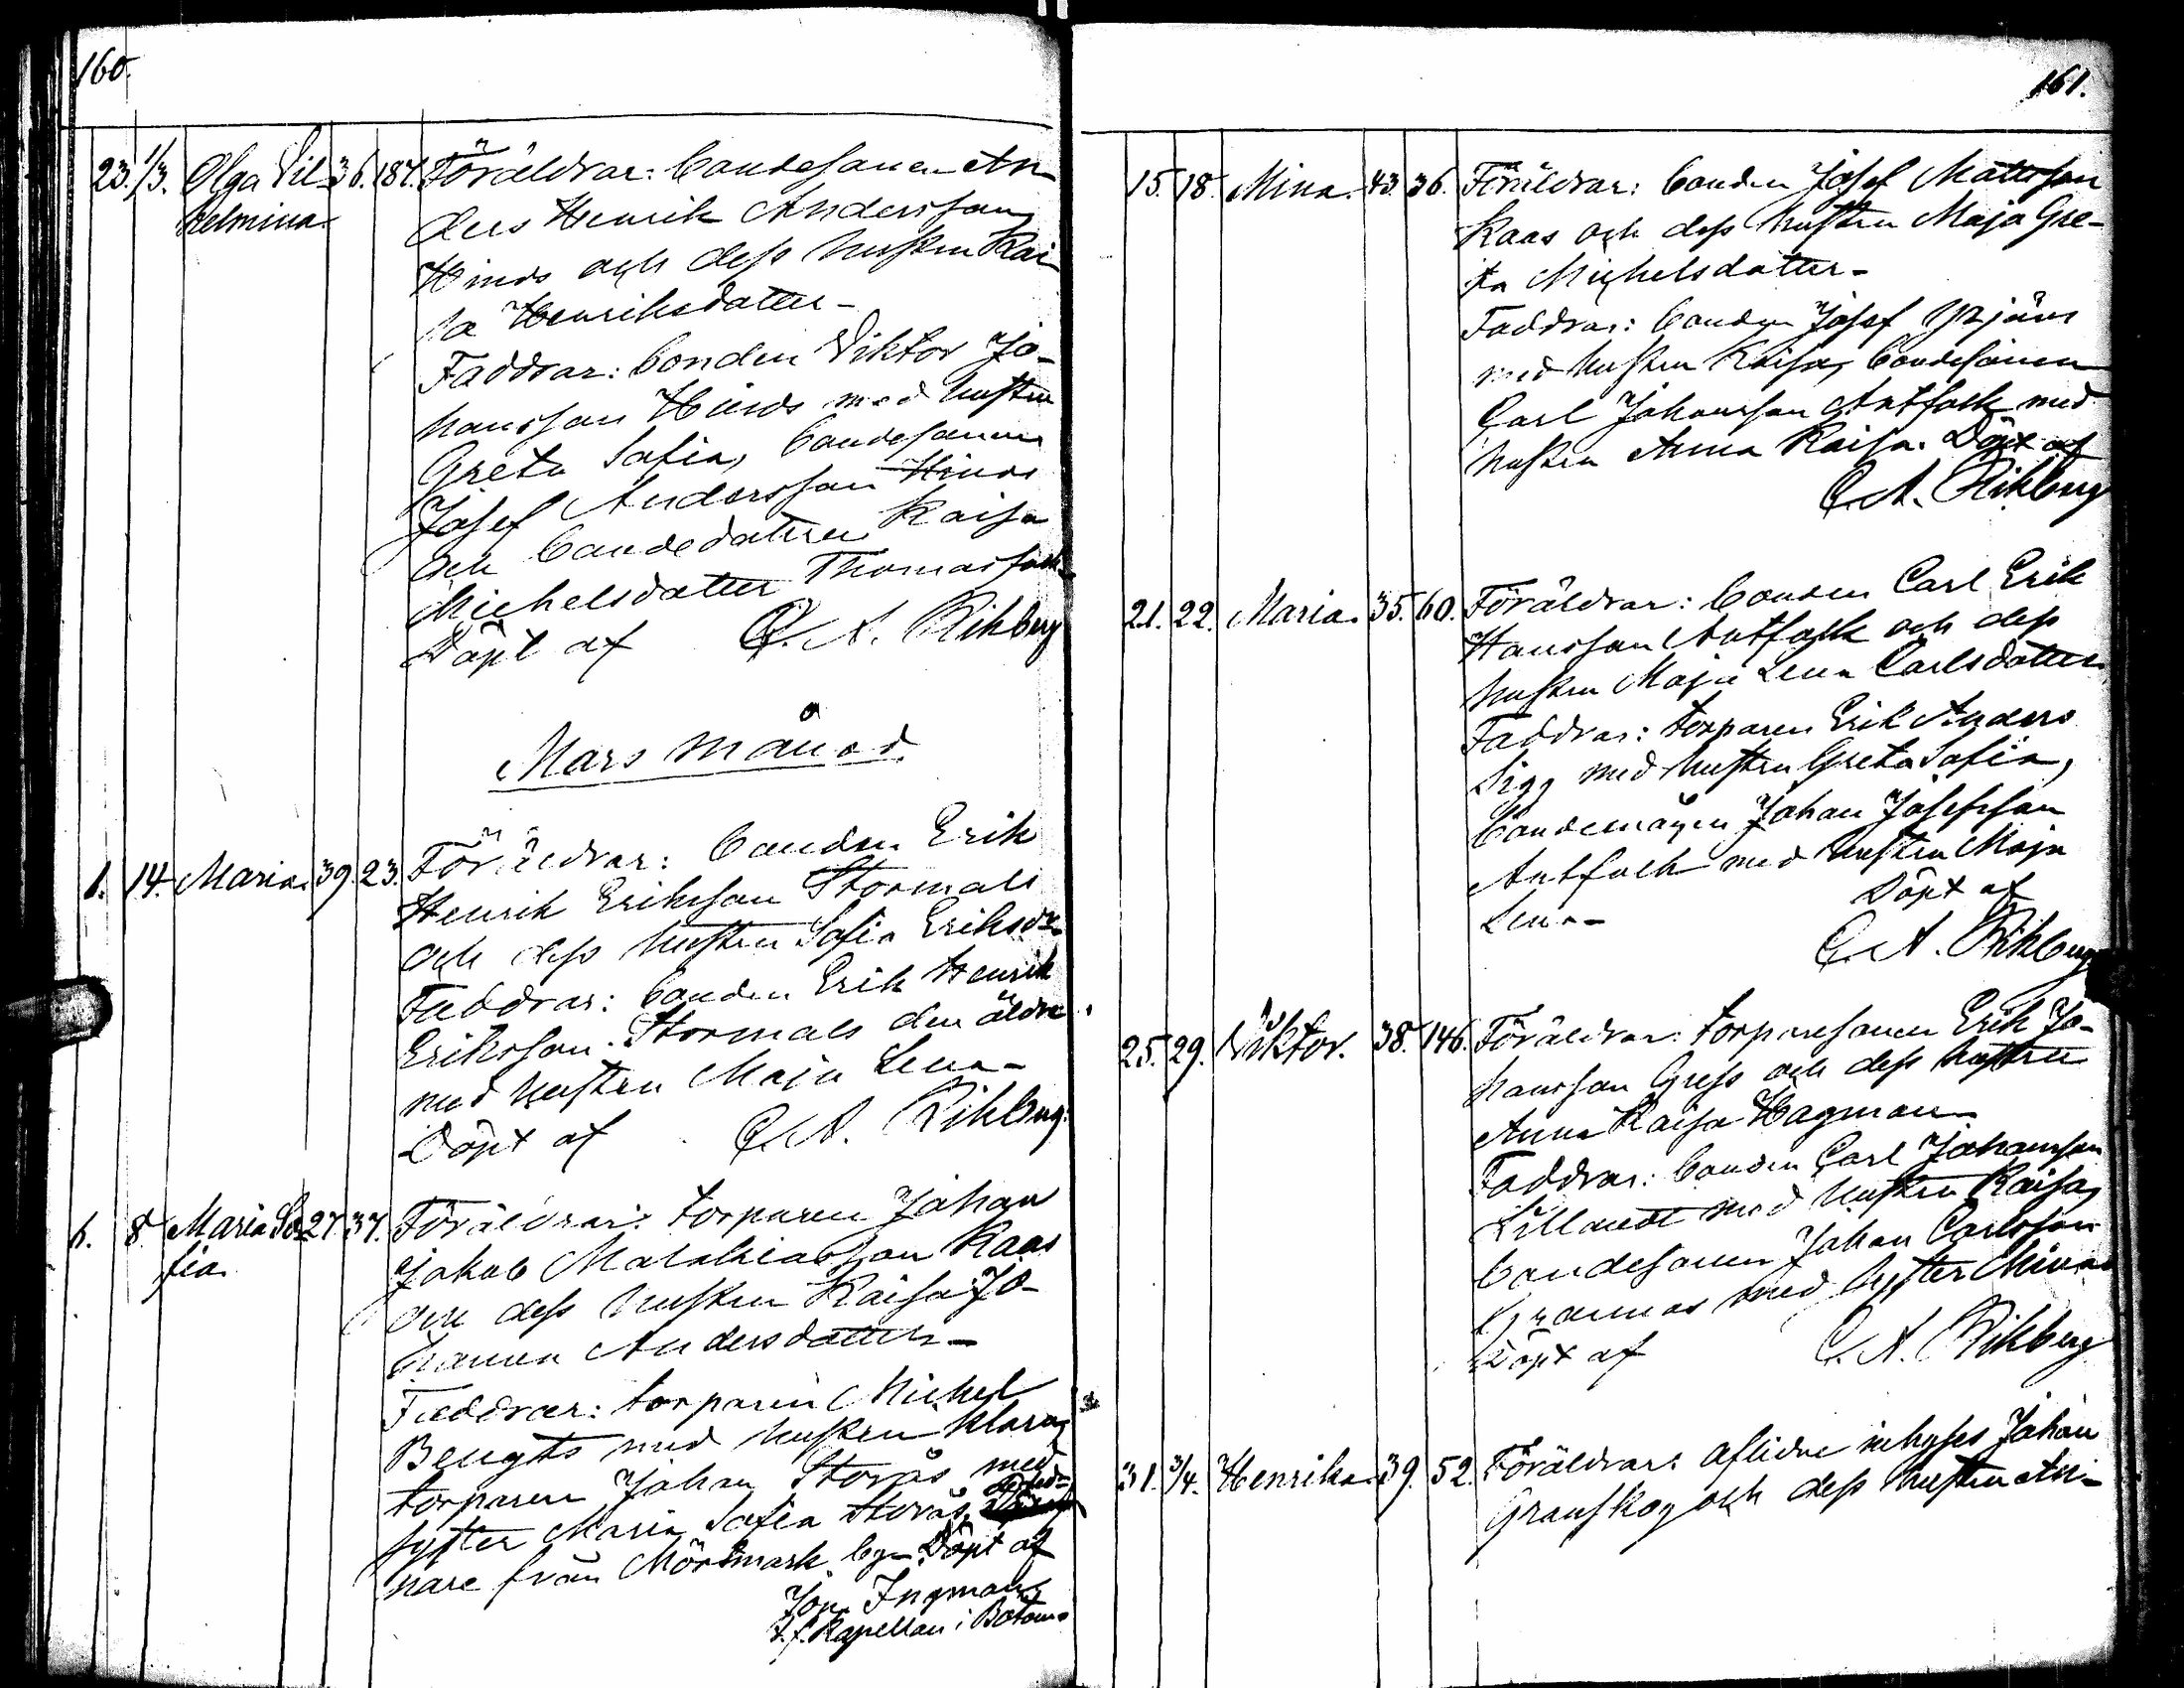 160.
23. 1/3. Olga Vil- 36. 187. Föräldrar: bondesonen An-
helmina. ders Henrik Andersson
Hinds och dess hustru Kai-
sa Henriksdotter-
Faddrar: bonden Viktor Jo-
hansson Hinds med hustru
Greta Sofia, bondesonen
Josef Andersson Hinds
och bondedottren Kaisa
Michelsdotter Thomasfolk-
Döpt af C. A. Rihberg
Mars månad.
1. 14. Maria. 39. 23. Föräldrar: bonden Erik
Henrik Eriksson Stormals
och dess hustru Sofia Eriksdr.
Faddrar: bonden Erik Henrik
Eriksson Stormals den äldre
med hustru Maja Lena-
Döpt af C. A. Rihberg.
6. 8. Maria So- 27. 37. Föräldrar: torparen Johan
fia. Jakob Malakiasson Kaas
och dess hustru Kaisa Jo-
hanna Andersdotter-
Faddrar: torparen Michel
Bengts med hustru Klara,
torparen Johan Storås med
syster Maria Sofia Storås,
nare från Mörtmark by- Döpt af
Jon. Ingman
t. f. Kapellan i Bötom.
161.
15. 18. Mina. 43. 36. Föräldrar: bonden Josef Mattsson
Kaas och dess hustru Maja Gre-
ta Michelsdotter-
Faddrar: bonden Josef Yrjäns
med hustru Kaisa, bondesonen
Carl Johansson Antfolk med
hustru Anna Kaisa. Döpt af
C. A. Rihberg
21. 22. Maria. 35. 60. Föräldrar: bonden Carl Erik
Hansson Antfolk och dess
hustru Maja Lena Carlsdotter
Faddrar: torparen Erik Anders
Sigg med hustru Greta Sofia,
bondemågen Johan Josefsson
Antfolk med hustru Maja
Lena- Döpt af
C. A. Rihberg
25. 29. Viktor. 38. 146. Föräldrar: torparesonen Erik Jo-
hansson Gress och dess hustru
Anna Kaisa Hagman
Faddrar: bonden Carl Johansson
Lillandt med hustru Kaisa,
bondesonen Johan Carlsson
Grannas med syster Mina
Döpt af C. A. Rihberg
31. 3/4. Henrika. 39. 52. Föräldrar: aflidne inhyses Johan
Granskog och dess hustru An-